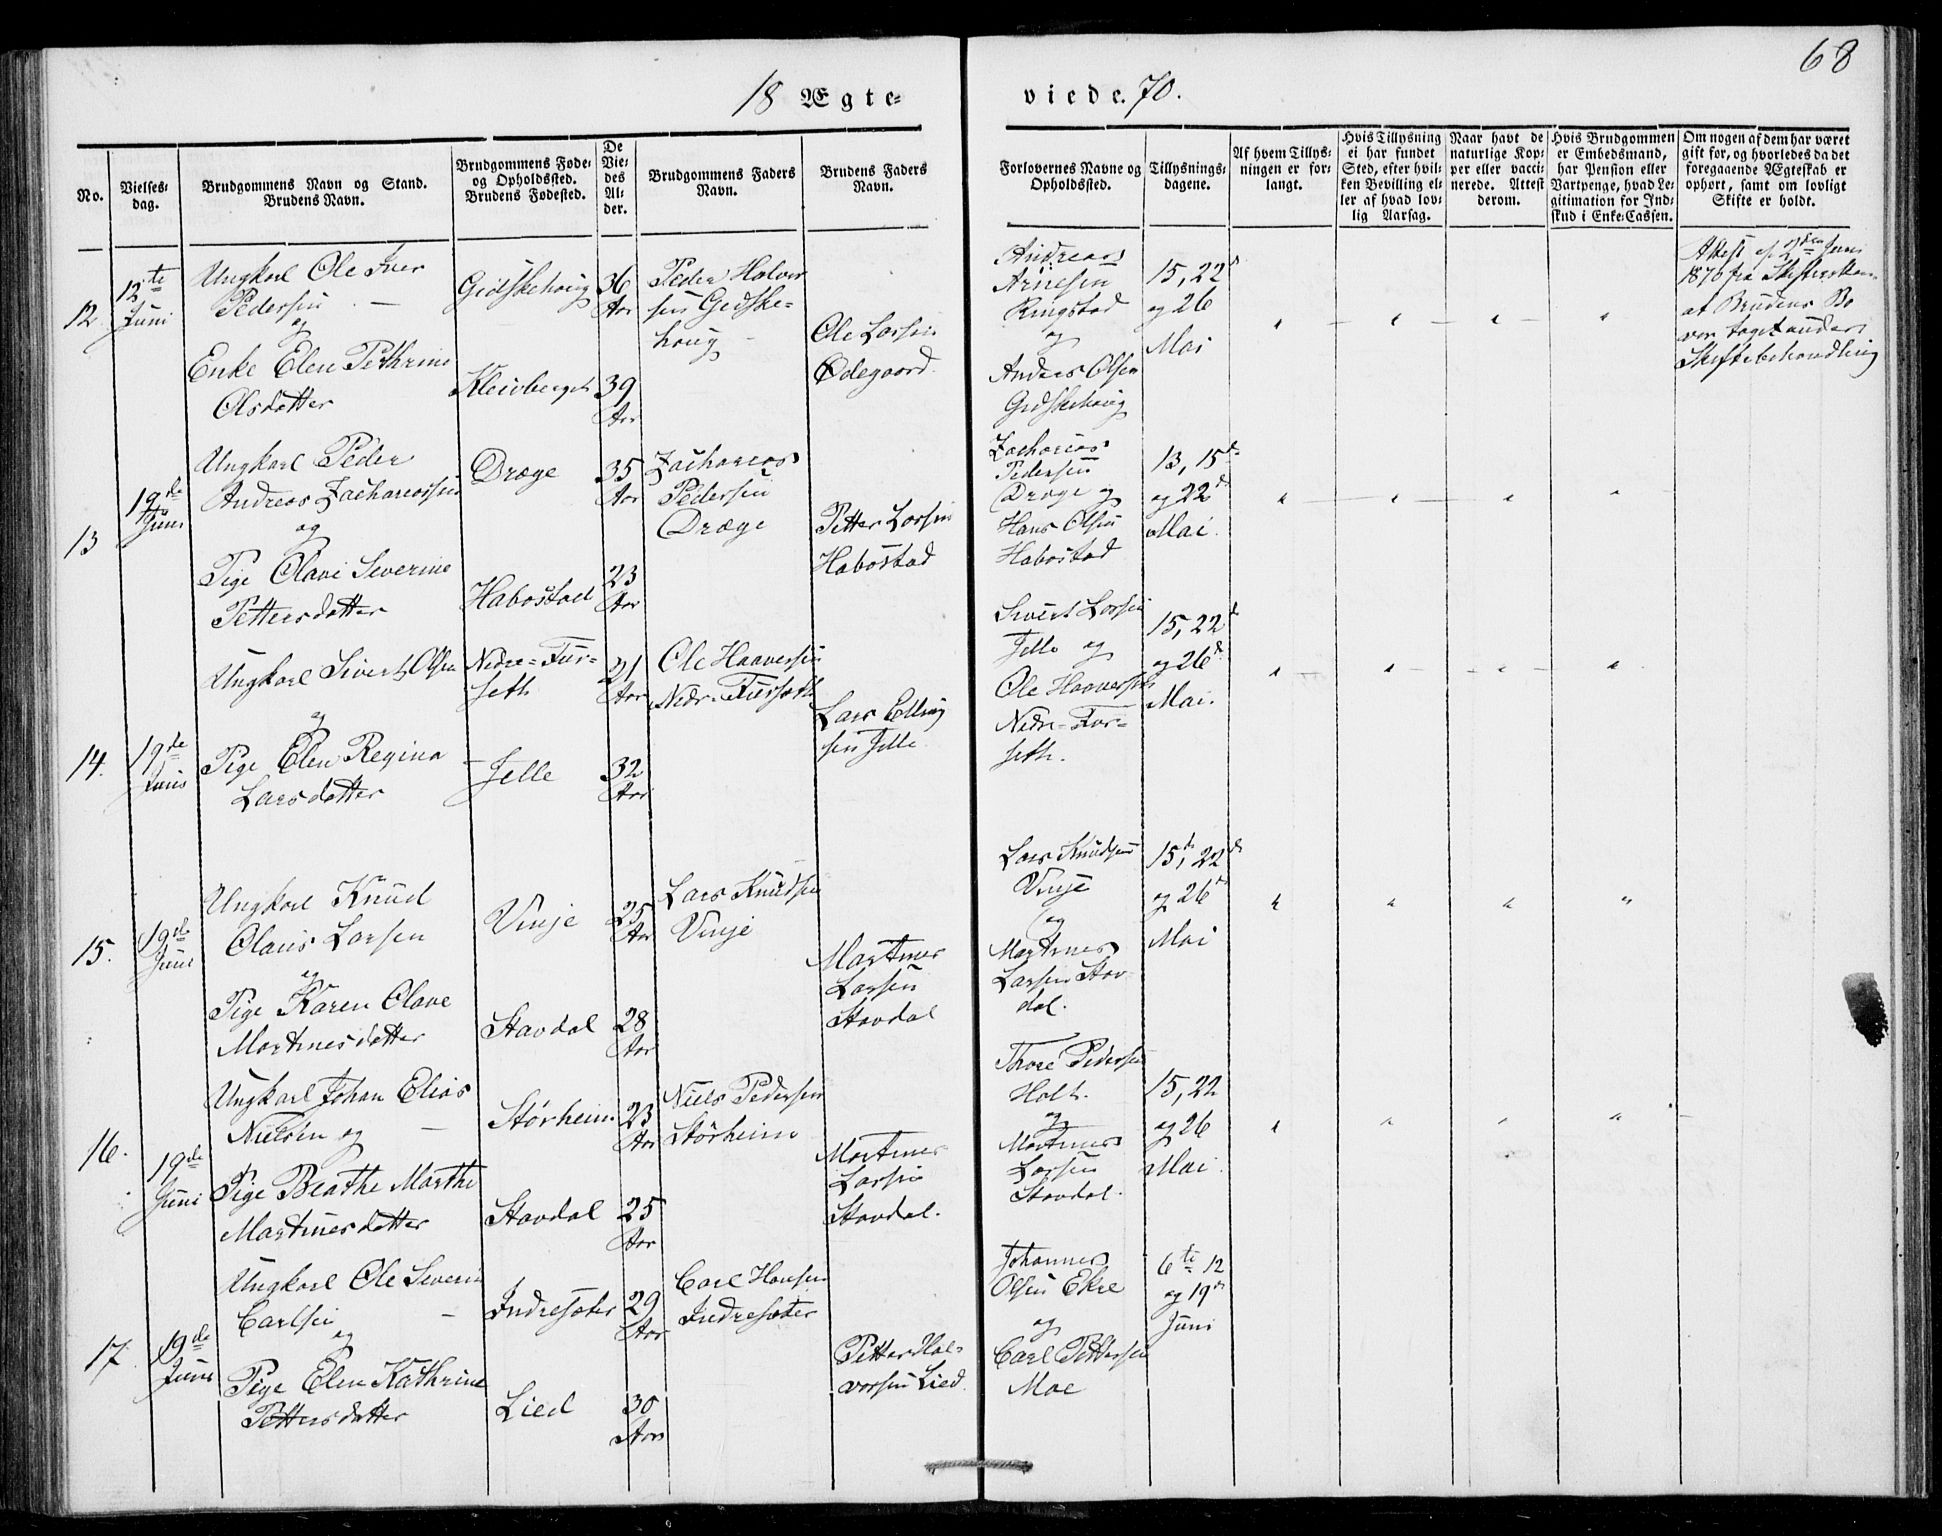 68
18 Ægte- viede. 70.
No.
Vielses-
dag.
Brudgommens Navn og Stand.
Brudens Navn.
Brudgommens Føde-
og Opholdssted.
Brudens Fødested.
De
Vie-
des
Al-
der.
Brudgommens Faders
Navn.
Brudens Faders
Navn.
Forlovernes Navne og
Opholdssted.
Tillysnings-
dagene.
Af hvem Tillys-
ningen er for-
langt.
Hvis Tillysning
ei har fundet
Sted, efter hvil-
ken Bevilling el-
ler af hvad lov-
lig Aarsag.
Naar havt de
naturlige Kop-
per eller vacci-
nerede. Attest
derom.
Hvis Brudgommen
er Embedsmand,
har Pension eller
Vartpenge, hvad Le-
gitimation for Ind-
skud i Enke-Cassen.
Om nogen af dem har været
gift før, og hvorledes da det
foregaaende Ægteskab er
ophørt, samt om lovligt
Skifte er holdt.
12.
12te
Juni
Ungkarl Ole Iver
Pedersen
og
Enke Elen Pethrine
Olsdatter
Gidskehoug
Kleivberget
36
Aar
39
Aar
Peder Halvor
sen Gidske-
houg
Ole Larsen
Ødegaard.
Andreas
Arnesen
Ringstad
og
Anders Olsen
Gidskehoug
15, 22d
og 26
Mai
Attest af 2den Juni
1870 fra Skifteretten
at Brudens Bo
var taget under
Skiftebehandling
13
19de
Juni
Ungkarl Peder
Andreas Zachariassen
og
Pige Olave Severine
Pettersdatter
Drage
Habostad
35
Aar
23
Aar
Zacharias
Pedersen
Drage
Petter Larsen
Habostad
Zacharias
Pedersen
Drage og
Hans Olsen
Habostad
13, 15de
og 22d
Mai.
14.
19de
Juni
Ungkarl Sivert Olsen
og
Pige Elen Regina
Larsdatter
Nedre-Fur-
seth
Jelle
21
Aar
32
Aar
Ole Haaversen
Nedr-Furseth
Lars Elling
sen Jelle.
Sivert Larsen
Jelle og
Ole Haaversen
Nedre-Fur-
seth.
15, 22d
og 26d
Mai.
15.
19de
Juni
Ungkarl Knud
Olaus Larsen
og
Pige Karen Olave
Martinesdatter
Vinje
Stavdal
25
Aar
28
Aar
Lars Knudsen
Vinje
Martines
Larsen
Stavdal
Lars Knudsen
Vinje
og
Martines
Larsen Stav-
dal.
15d, 22d
og 26d
Mai
16.
19de
Juni
Ungkarl Johan Elias
Nielsen og
Pige Beathe Marthe
Martinesdatter
Størheim
Stavdal
23
Aar
25
Aar
Niels Pedersen
Størheim
Martines
Larsen
Stavdal.
Thore Pedersen
Holt.
og
Martines
Larsen
Stavdal.
15, 22
og 26
Mai
17.
19de
Juni
Ungkarl Ole Severin
Carlsen
og
Pige Elen Kathrine
Pettersdatter
Indresæter
Lied
29
Aar
30
Aar
Carl Hansen
Indresæter
Petter Hal-
vorsen Lied.
Johannes
Olsen Ekre
og
Carl Pettersen
Moe
6te 12
og 19de
Juni